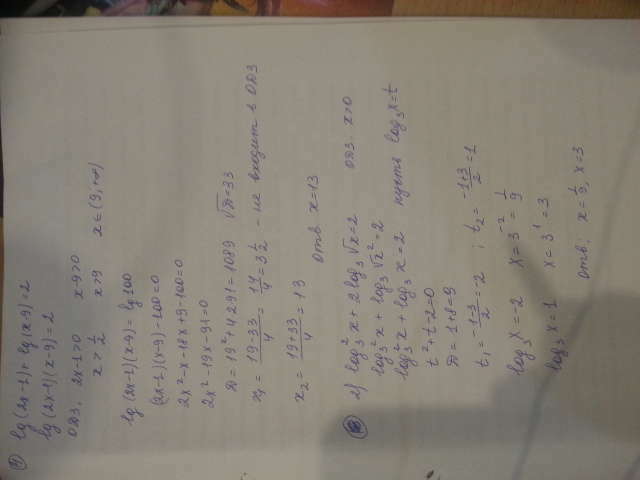 1) lg(2x-1) + lg(x-9) = 2
lg(2x-1)(x-9) = 2
ОДЗ. 2x-1>0 x-9>0
x > 1/2 x>9 x∈(9,+∞)
lg(2x-1)(x-9) = lg100
(2x-1)(x-9)-100=0
2x²-x-18x+9-100=0
2x²-19x-91=0
D = 19²+4·2·91=1089 √D=33
x₁ = (19-33)/4 = 14/4 = 3 1/2 - не входит в ОДЗ
x₂ = (19+33)/4 = 13
Отв x=13
2) log₃²x + 2log₃√x = 2 ОДЗ. x>0
log₃²x + log₃√x² = 2
log₃²x + log₃x = 2 пусть log₃x = t
t²+t-2=0
D = 1+8=9
t₁ = (-1-3)/2 = -2 ; t₂ = (-1+3)/2 = 1
log₃x = -2 x = 3⁻² = 1/9
log₃x = 1 x = 3¹ = 3
Отв: x = 1/9, x = 3